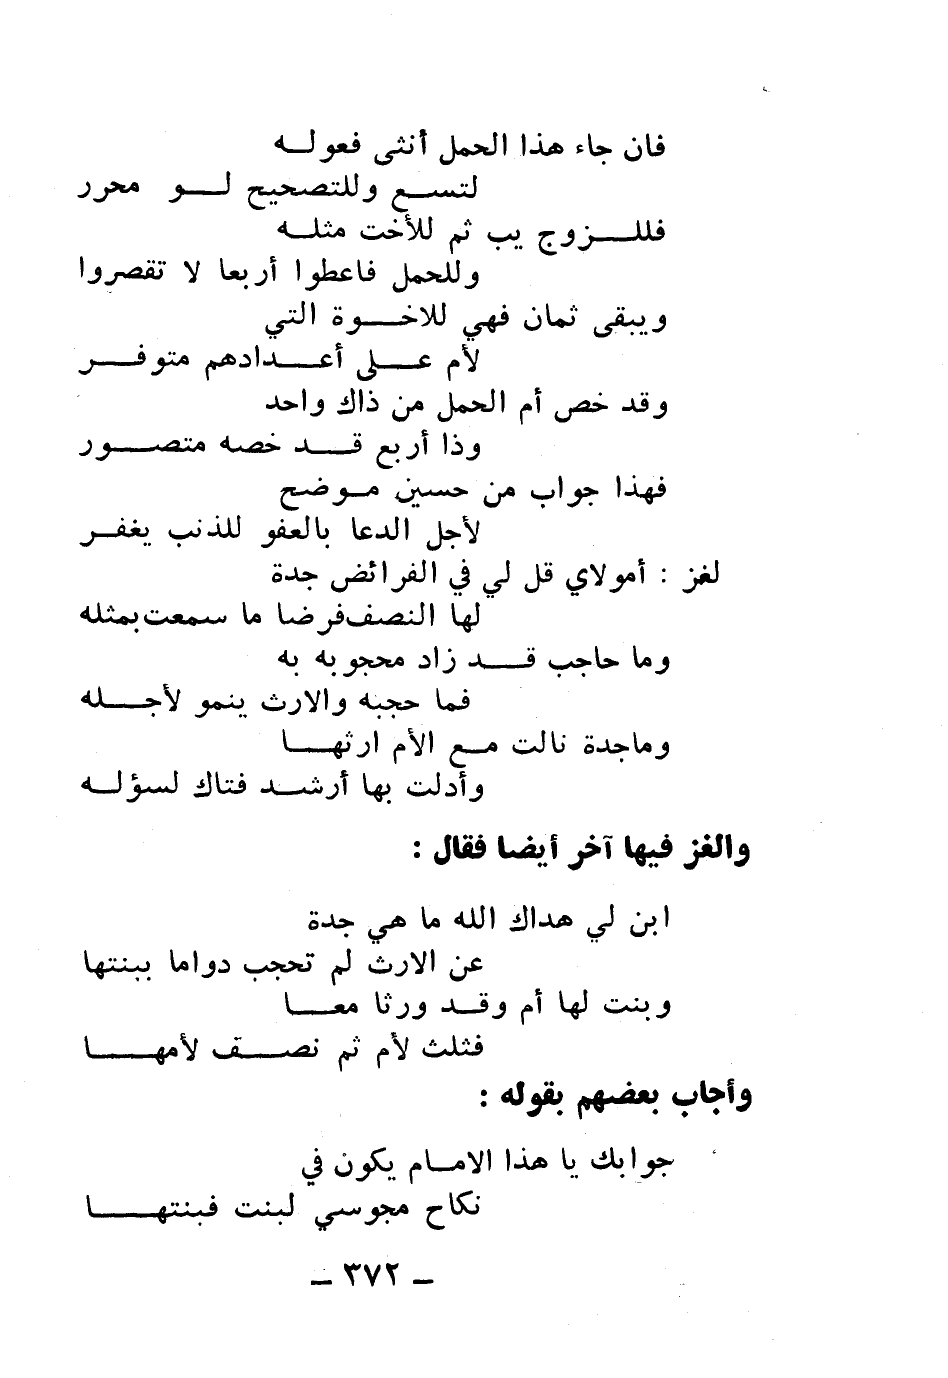 فان جاء هذا الحمل أنثى فعوله
لتسع وللتصحيح لو محرر
فللزوج يب ثم للأخت مثله
وللحمل فاعطوا أربعا لا تقصروا
ويبقى ثمان فهي للاخوة التي
لأم على أعدادهم متوفر
وقد خص أم الحمل من ذاك واحد
وذا أربع قد خصه متصور
فهذا جواب من حسين موضح
لأجل الدعا بالعفو للذنب يغفر
لغز : أمولاي قل لي في الفرائض جدة
لها النصف فرضا ما سمعت بمثله
وما حاجب قد زاد محجوبه به
فما حجبه والارث ينمو لأجله
وماجدة نالت مع الأم ارثها
وأدلت بها أرشد فتاك لسؤله
والغز فيها آخر أيضا فقال :
ابن لي هداك الله ما هي جدة
عن الارث لم تحجب دواما ببنتها
وبنت لها أم وقد ورثا معا
فثلث لأم ثم نصف لأمها
وأجاب بعضهم بقوله :
جوابك يا هذا الامام يكون في
نكاح مجوسي لبنت فبنتها
– ٣٧٢ –